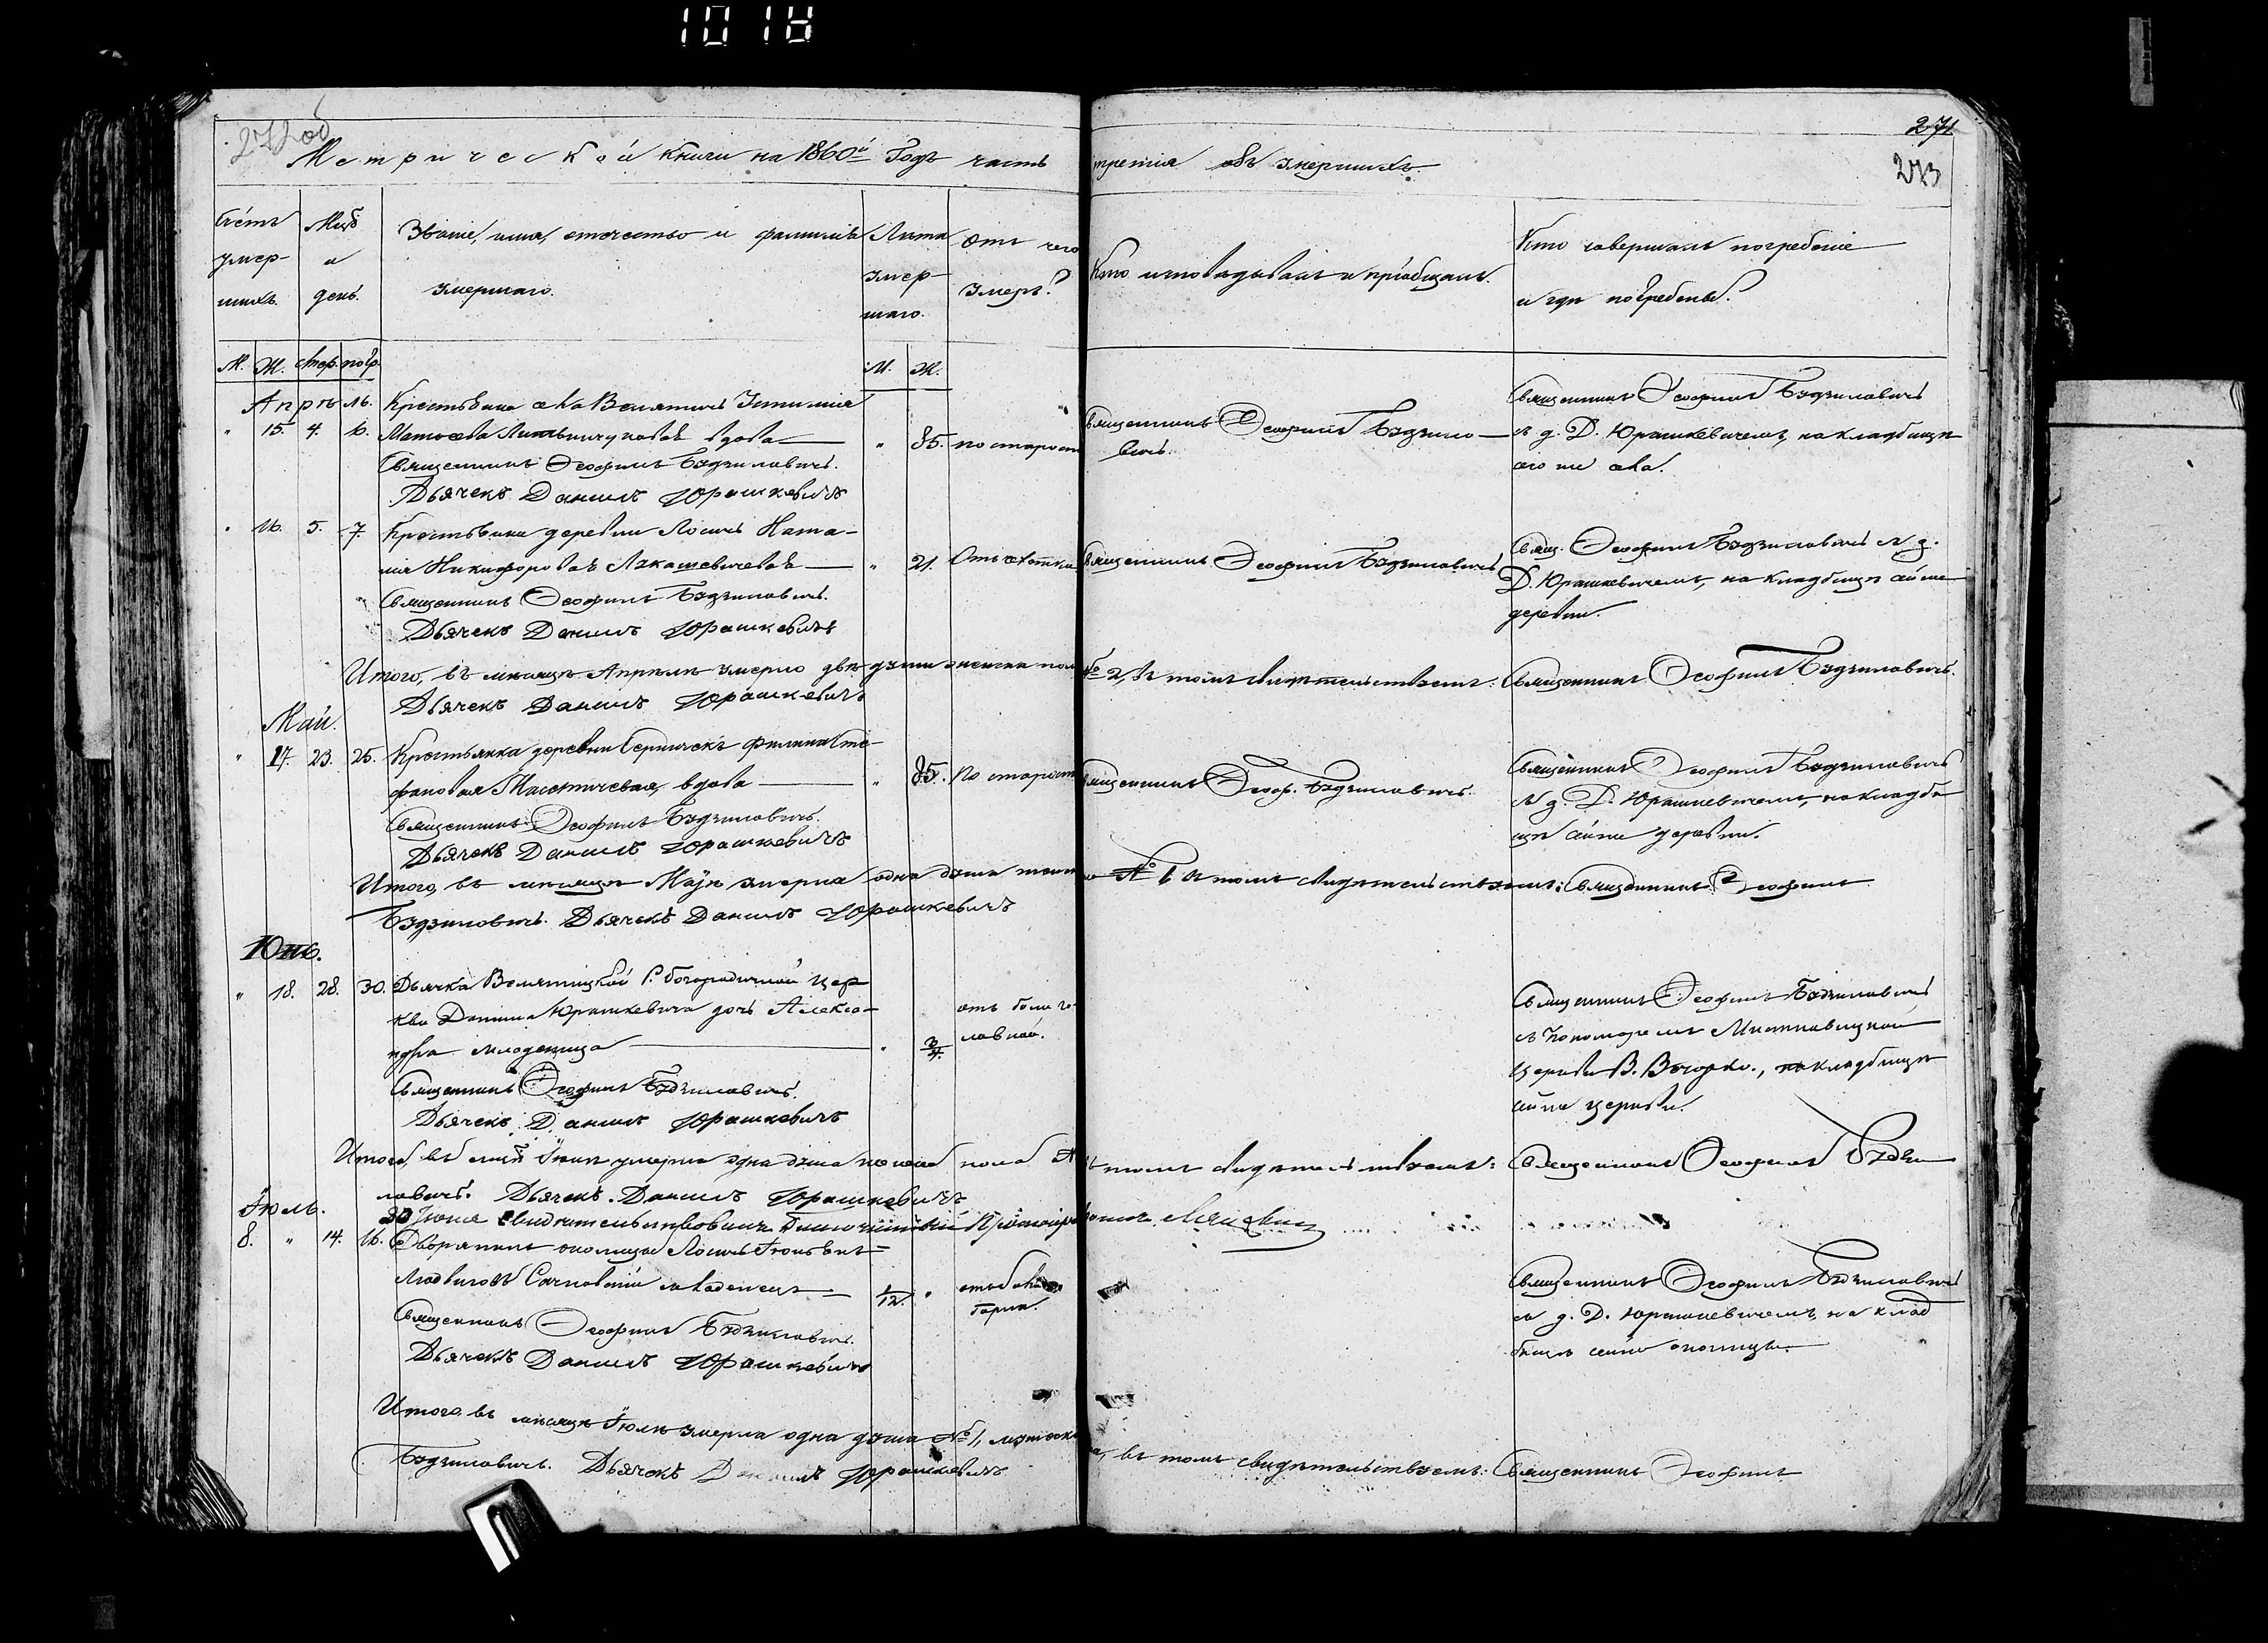 1018
272 об
271
273
Метрической книги на 1860й Годъ часть третія объ умершихъ.
Счетъ умер-шихъ.
Мѣсц. и день.
Званіе, имя, отчество и фамилія умершаго.
Лета умер-шаго.
Отъ чего умеръ?
Кто исповѣдывалъ и пріобщалъ.
Кто совершалъ погребеніе и гдѣ погребены.
М. Ж. Умер. погр.
М. Ж.
Апрѣль.
Крестьянка села Велятичъ
" 15. 4. 6. вдова " 85. по старости
Священникъ Ѳеофилъ Бэдзиловичъ.
Дьячекъ Даніилъ Юрашкевичъ
Священникъ Ѳеофилъ Бэдзиловичъ.
Священникъ Ѳеофилъ Бэдзиловичъ
съ д. Д. Юрашкевичемъ, на кладбищѣ
сего же села.
" 16. 5. 7. Крестьянка деревни Лосичъ Ната-
лія Никифорова " 21. Отъ чахотки
Священникъ Ѳеофилъ Бэдзиловичъ.
Дьячекъ Даніилъ Юрашкевичъ
Священникъ Ѳеофилъ Бэдзиловичъ
Свящ. Ѳеофилъ Бэдзиловичъ съ д.
Д. Юрашкевичемъ, на кладбищѣ сей же
деревни.
Итого, въ мѣсяцѣ Апрѣлѣ умерло двѣ души женска пола № 2, въ томъ свидѣтельствуемъ: Священникъ Ѳеофилъ Бэдзиловичъ.
Дьячекъ Даніилъ Юрашкевичъ
Май.
" 17. 23. 25. Крестьянка деревни Сте-
фановая вдова " 85. По старости
Священникъ Ѳеофилъ Бэдзиловичъ.
Дьячекъ Даніилъ Юрашкевичъ
Священникъ Ѳеоф. Бэдзиловичъ.
Священникъ Ѳеофилъ Бэдзиловичъ
съ д. Д. Юрашкевичемъ, на кладби-
щѣ сей же деревни.
Итого, въ мѣсяцѣ Маѣ умерла одна душа № 1, въ томъ свидѣтельствуемъ: Священникъ Ѳеофилъ
Бэдзиловичъ. Дьячекъ Даніилъ Юрашкевичъ
Юнь.
" 18. 28. 30. Дьячка Велятицкой Р. Богородичной цер-
кви Даніила Юрашкевича дочь Алекса-
ндра младеница " 3/4. отъ боли го-
ловной.
Священникъ Ѳеофилъ Бэдзиловичъ.
Дьячекъ Даніилъ Юрашкевичъ
Священникъ Ѳеофилъ Бэдзиловичъ
съ Пономаремъ
церкви В. на кладбищѣ
сей же церкви.
Итого, въ Іюнѣ умерла одна душа пола въ томъ свидѣтельствуемъ: Священникъ Ѳеофилъ Бэдзи-
ловичъ. Дьячекъ Даніилъ Юрашкевичъ
30 Іюня свидѣтельствовалъ Благочинный
Іюль.
8. " 14. 16. Дворянинъ околицы Лосичъ
младенецъ 1/12. "
Священникъ Ѳеофилъ Бэдзиловичъ.
Дьячекъ Даніилъ Юрашкевичъ
Священникъ Ѳеофилъ Бэдзиловичъ
съ д. Д. Юрашкевичемъ, на клад-
бищѣ сей же околицы.
Итого, въ мѣсяцѣ Іюлѣ умерла одна душа № 1, въ томъ свидѣтельствуемъ: Священникъ Ѳеофилъ
Бэдзиловичъ. Дьячекъ Даніилъ Юрашкевичъ